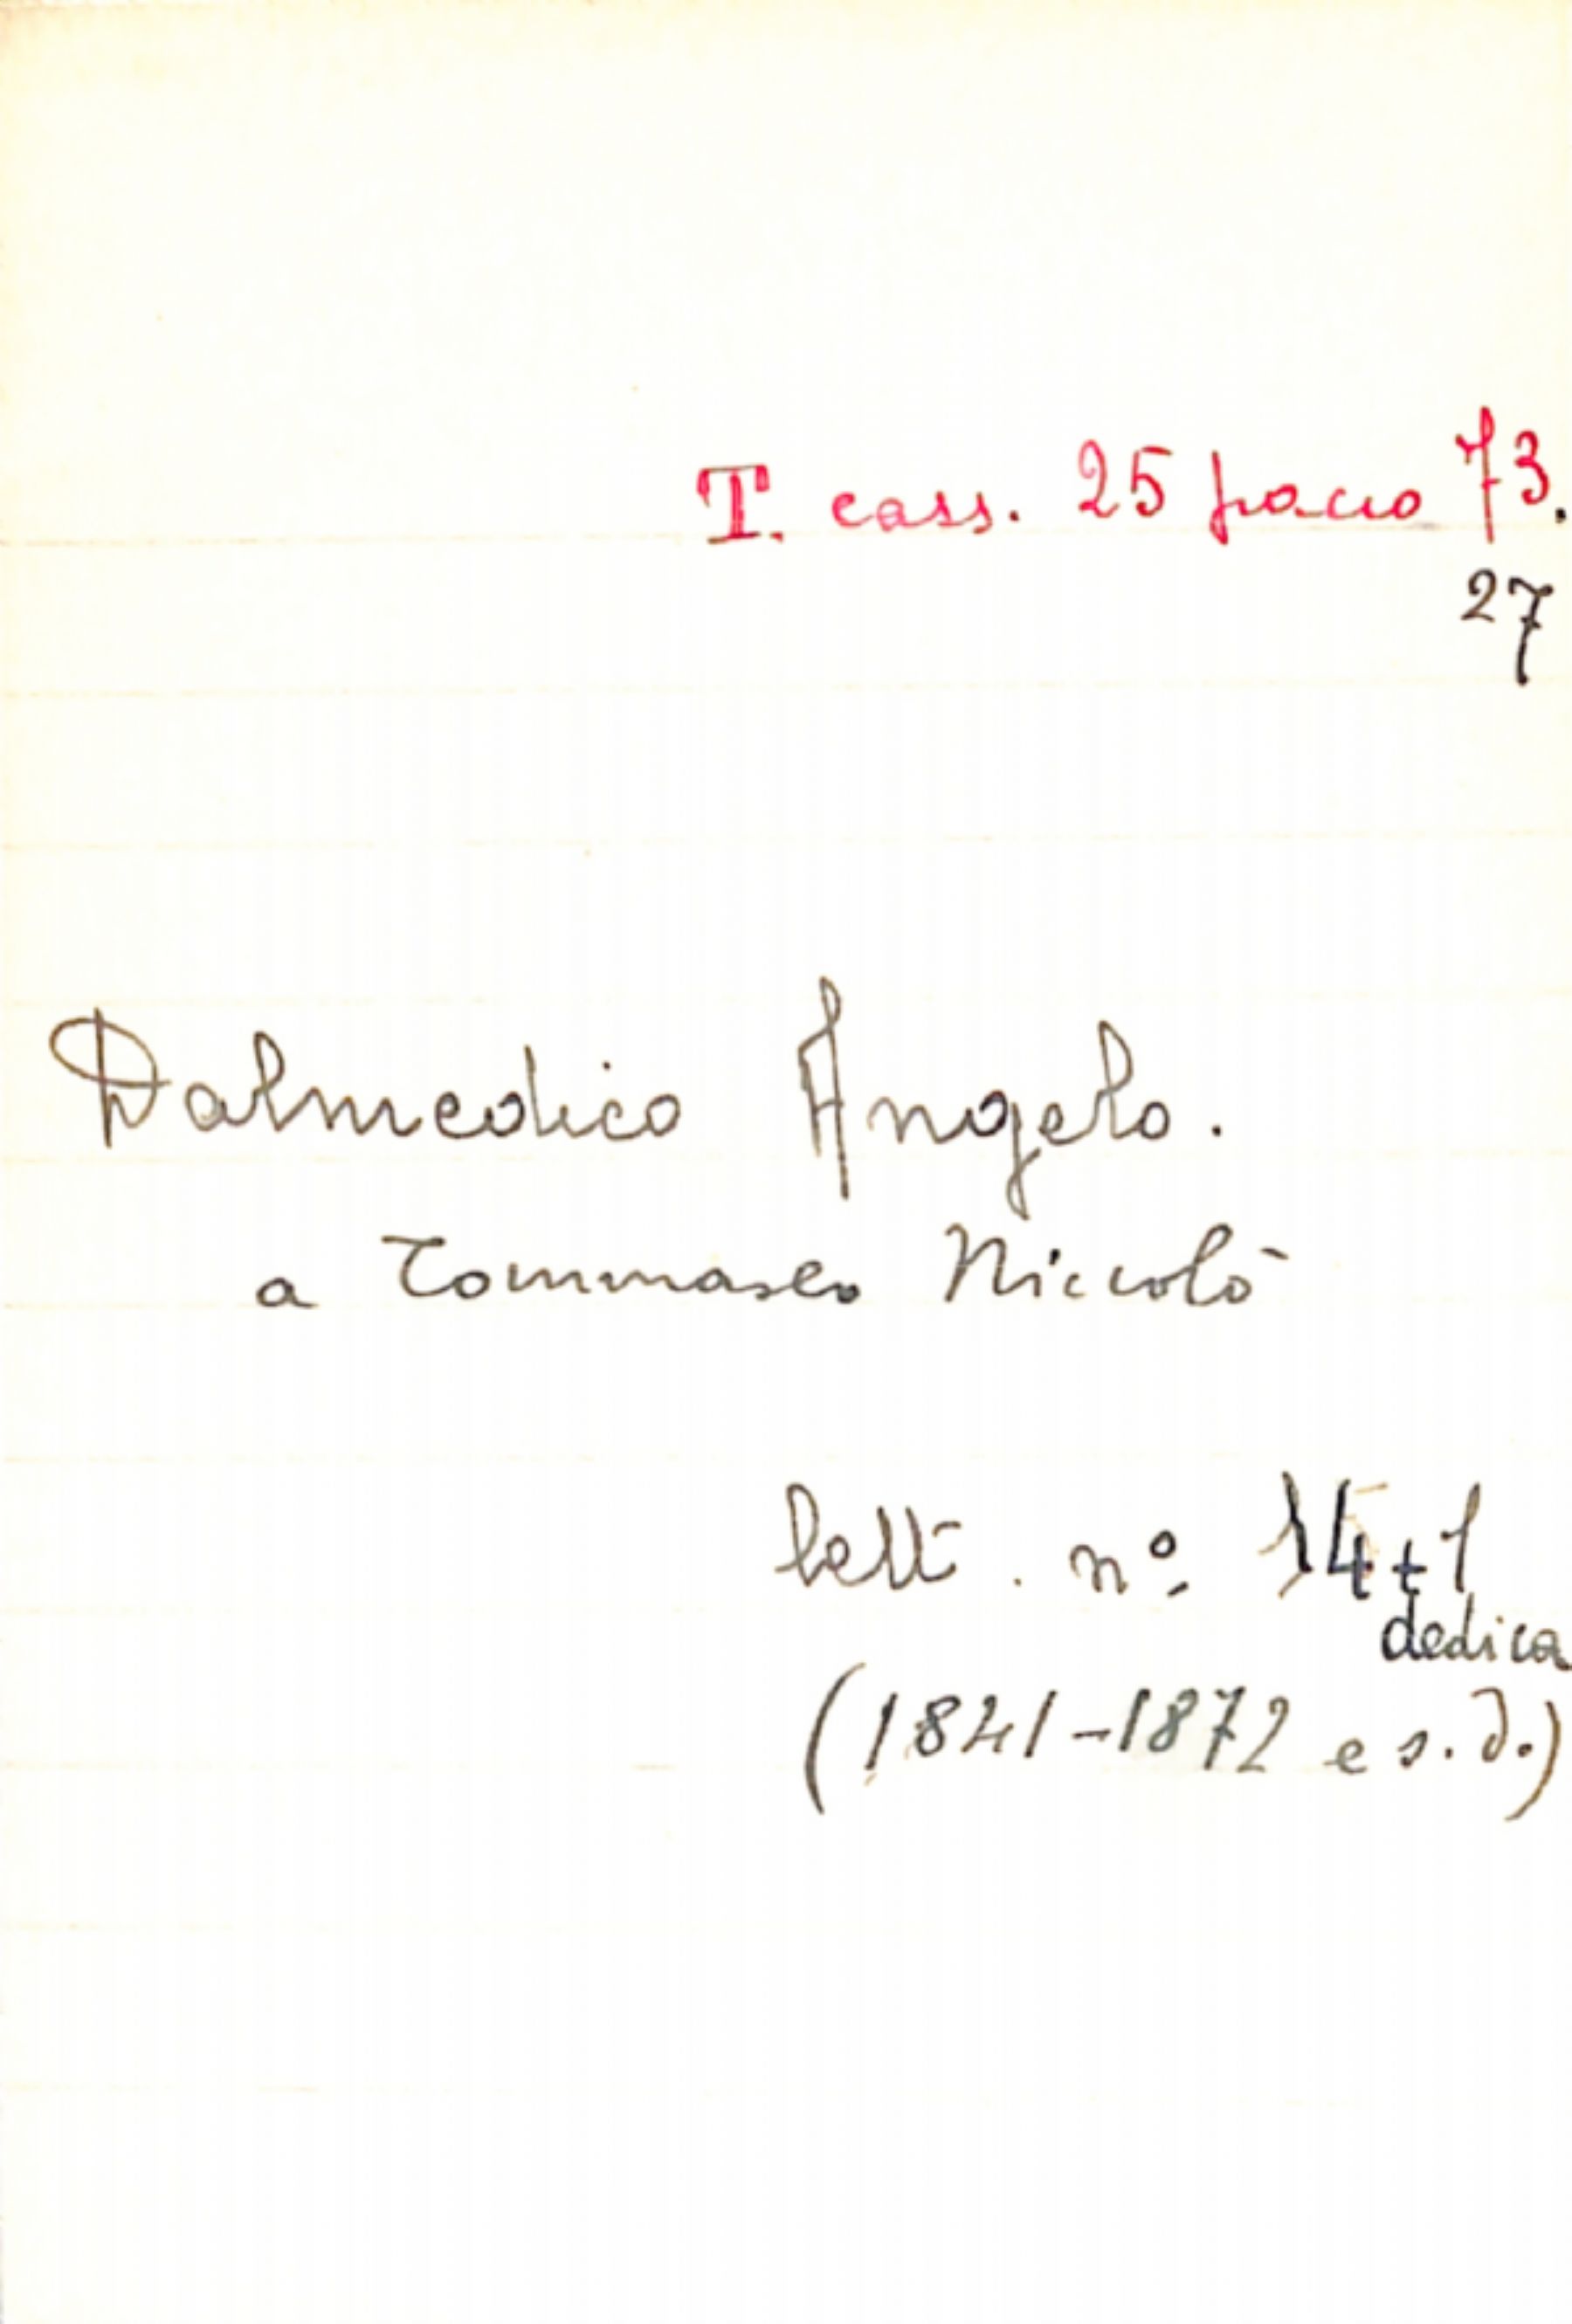 T. cass. 25 pacco 73.
27
Dalmedico Angelo.
a Tommaseo Niccolò
lett. nº 14+1
dedica
(1841-1872 e s.d.)